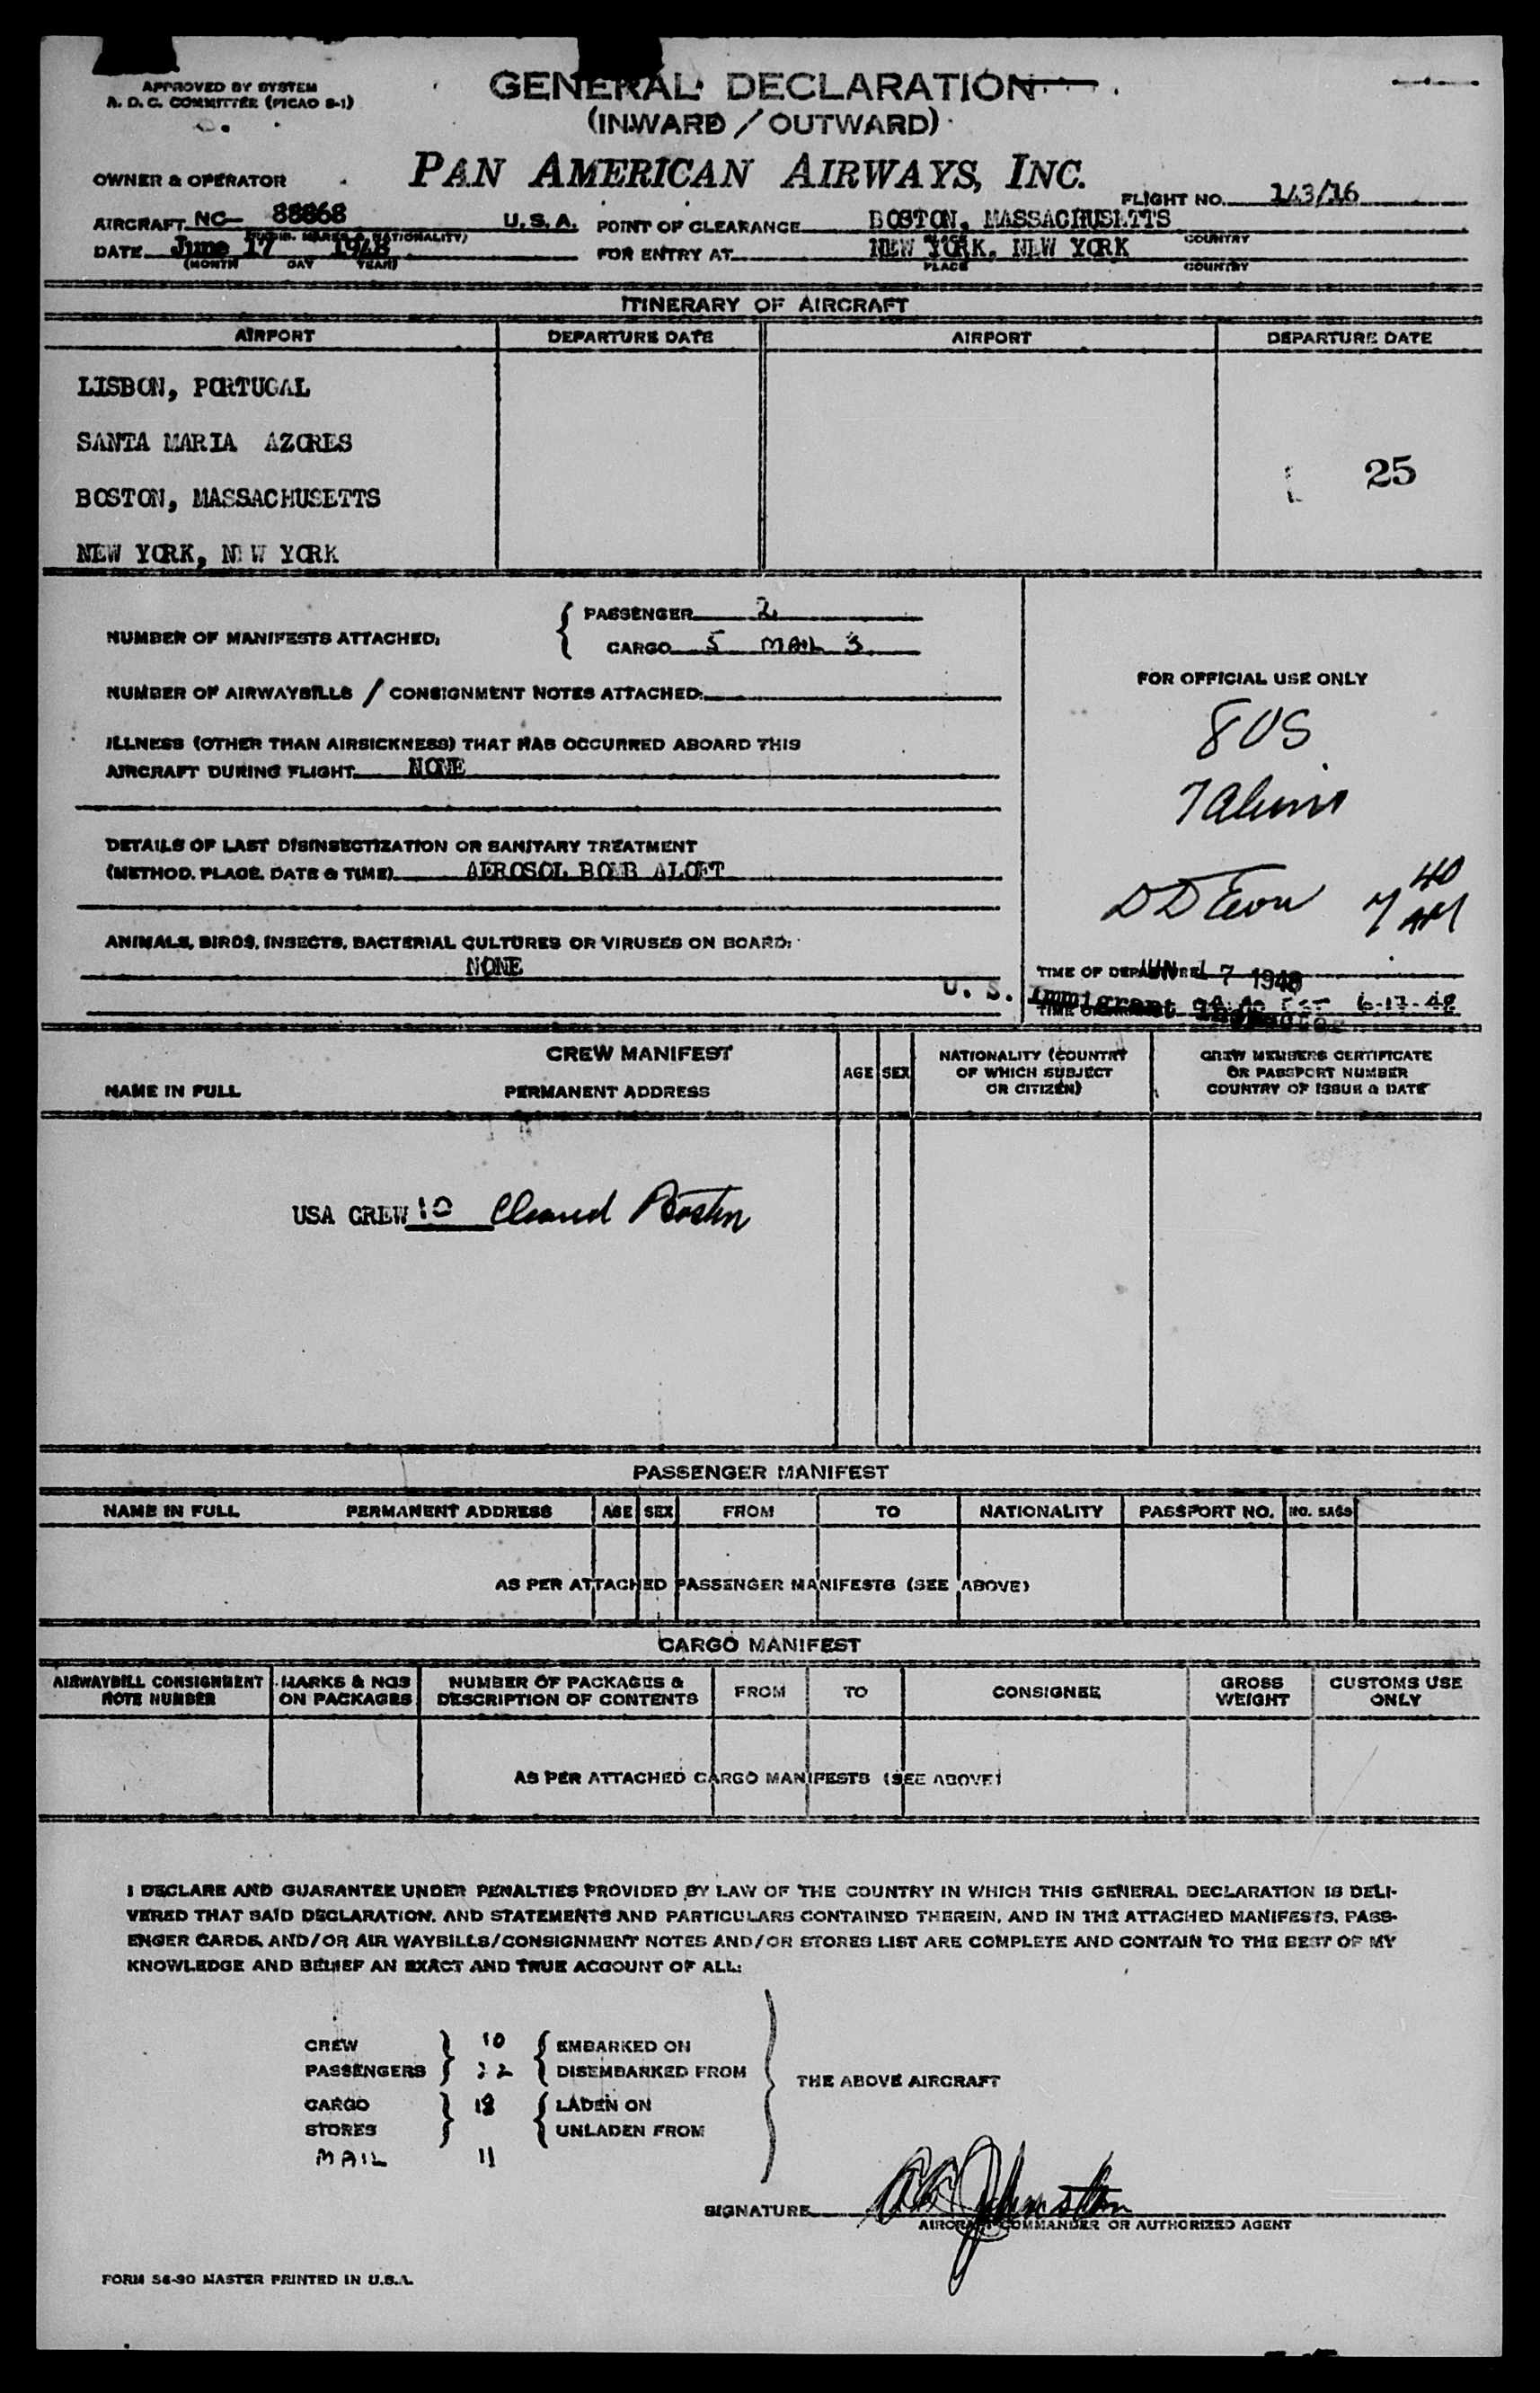 APPROVED BY SYSTEM
A. D. C. COMMITTEE (PICAO S-1)
GENERAL DECLARATION
(INWARD / OUTWARD)
PAN AMERICAN AIRWAYS, INC.
OWNER & OPERATOR
FLIGHT NO. 143/16
AIRCRAFT NC- 88868 U. S. A.
POINT OF CLEARANCE BOSTON, MASSACHUSETTS
COUNTRY
DATE June 17 1948
(MONTH DAY YEAR)
FOR ENTRY AT NEW YORK, NEW YORK
PLACE COUNTRY
ITINERARY OF AIRCRAFT
AIRPORT DEPARTURE DATE AIRPORT DEPARTURE DATE
LISBON, PORTUGAL
SANTA MARIA AZORES
25
BOSTON, MASSACHUSETTS
NEW YORK, NEW YORK
NUMBER OF MANIFESTS ATTACHED:
PASSENGER 2
CARGO 5 MAIL 3
NUMBER OF AIRWAYBILLS / CONSIGNMENT NOTES ATTACHED:
FOR OFFICIAL USE ONLY
8 US
7 Aliens
ILLNESS (OTHER THAN AIRSICKNESS) THAT HAS OCCURRED ABOARD THIS
AIRCRAFT DURING FLIGHT NONE
DETAILS OF LAST DISINSECTIZATION OR SANITARY TREATMENT
(METHOD, PLACE, DATE & TIME) AEROSOL BOMB ALOFT
7 40 AM
ANIMALS, BIRDS, INSECTS, BACTERIAL CULTURES OR VIRUSES ON BOARD:
NONE
TIME OF DEPARTURE JUN 17 1948
U. S. Immigrant Inspector
EST 6-17-48
CREW MANIFEST
NAME IN FULL PERMANENT ADDRESS AGE SEX
NATIONALITY (COUNTRY
OF WHICH SUBJECT
OR CITIZEN)
CREW MEMBERS CERTIFICATE
OR PASSPORT NUMBER
COUNTRY OF ISSUE & DATE
USA CREW 10 Cleared Boston
PASSENGER MANIFEST
NAME IN FULL PERMANENT ADDRESS AGE SEX FROM TO NATIONALITY PASSPORT NO. NO. BAGS
AS PER ATTACHED PASSENGER MANIFESTS (SEE ABOVE)
CARGO MANIFEST
AIRWAYBILL CONSIGNMENT
NOTE NUMBER
MARKS & NOS
ON PACKAGES
NUMBER OF PACKAGES &
DESCRIPTION OF CONTENTS
FROM TO CONSIGNEE
GROSS
WEIGHT
CUSTOMS USE
ONLY
AS PER ATTACHED CARGO MANIFESTS (SEE ABOVE)
I DECLARE AND GUARANTEE UNDER PENALTIES PROVIDED BY LAW OF THE COUNTRY IN WHICH THIS GENERAL DECLARATION IS DELI-
VERED THAT SAID DECLARATION, AND STATEMENTS AND PARTICULARS CONTAINED THEREIN, AND IN THE ATTACHED MANIFESTS, PASS-
ENGER CARDS, AND/OR AIR WAYBILLS/CONSIGNMENT NOTES AND/OR STORES LIST ARE COMPLETE AND CONTAIN TO THE BEST OF MY
KNOWLEDGE AND BELIEF AN EXACT AND TRUE ACCOUNT OF ALL:
CREW 10 EMBARKED ON
PASSENGERS 22 DISEMBARKED FROM
THE ABOVE AIRCRAFT
CARGO 18 LADEN ON
STORES UNLADEN FROM
MAIL 11
SIGNATURE Johnston
AIRCRAFT COMMANDER OR AUTHORIZED AGENT
FORM 54-90 MASTER PRINTED IN U.S.A.